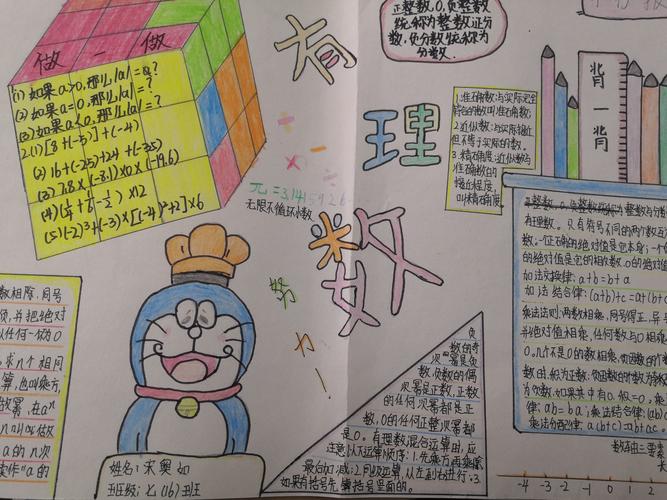 做一做
(1)如果a>0,那么|a|=a?
(2)如果a=0,那么|a|=?
(3)如果a<0,那么|a|=?
2.(1)[8+(-5)]+(-4)
(2)16+(-25)+24+(-35)
(3)7.8×(-3.1)×0×(-19.6)
×12
(5)(-2)³+(-3)×[(-4)²+2]×6
有
理
数
π=3.1415926
无限不循环小数
努
力
!
正整数.0.负整数
统称为整数.正分
数.负分数统称为
分数.
1.准确数:与实际完全
符合的数叫准确数
2.近似数:与实际接近
但不等于实际的数.
3.精确度:近似数与
准确数的
接近程度.
叫精确度.
背
一
背
有理数.只有符号不同的两个数
数.一个正确的绝对值是它本身;一个
的绝对值是它的相反数.0的绝对值
加法交换律:a+b=b+a
加法结合律:(a+b)+c=a+(b+
乘法法则:两数相乘,同号得正.异号
并绝对值相乘.任何数与0相乘
0.几个不是0的数相乘,负因数的个数
数时.积为正数.负因数的个数为奇数
为负数.如果其中有0.积=0.
律:ab=ba;乘法结合律:(ab)
乘法分配律:a(b+c)=ab+ac
数轴三要素
-4 -3 -2 -1 0 1 2
数相除.同号
并把绝对
以任何一切为0
求n个相同
算,也叫乘方,
做幂.在aⁿ
n叫做
a的n次
读作"a的
姓名:宋奥如
班级:七(16)班
负
数的奇
次幂是负
数,负数的偶
次幂是正数,正数
的任何次幂都是正
数,0的任何正整次幂都
是0.有理数混合运算中,应
注意以下运算顺序:1.先乘方,再乘除
最后加减;2.同级运算,从左到右进行;3
如果有括号先算括号里面的.